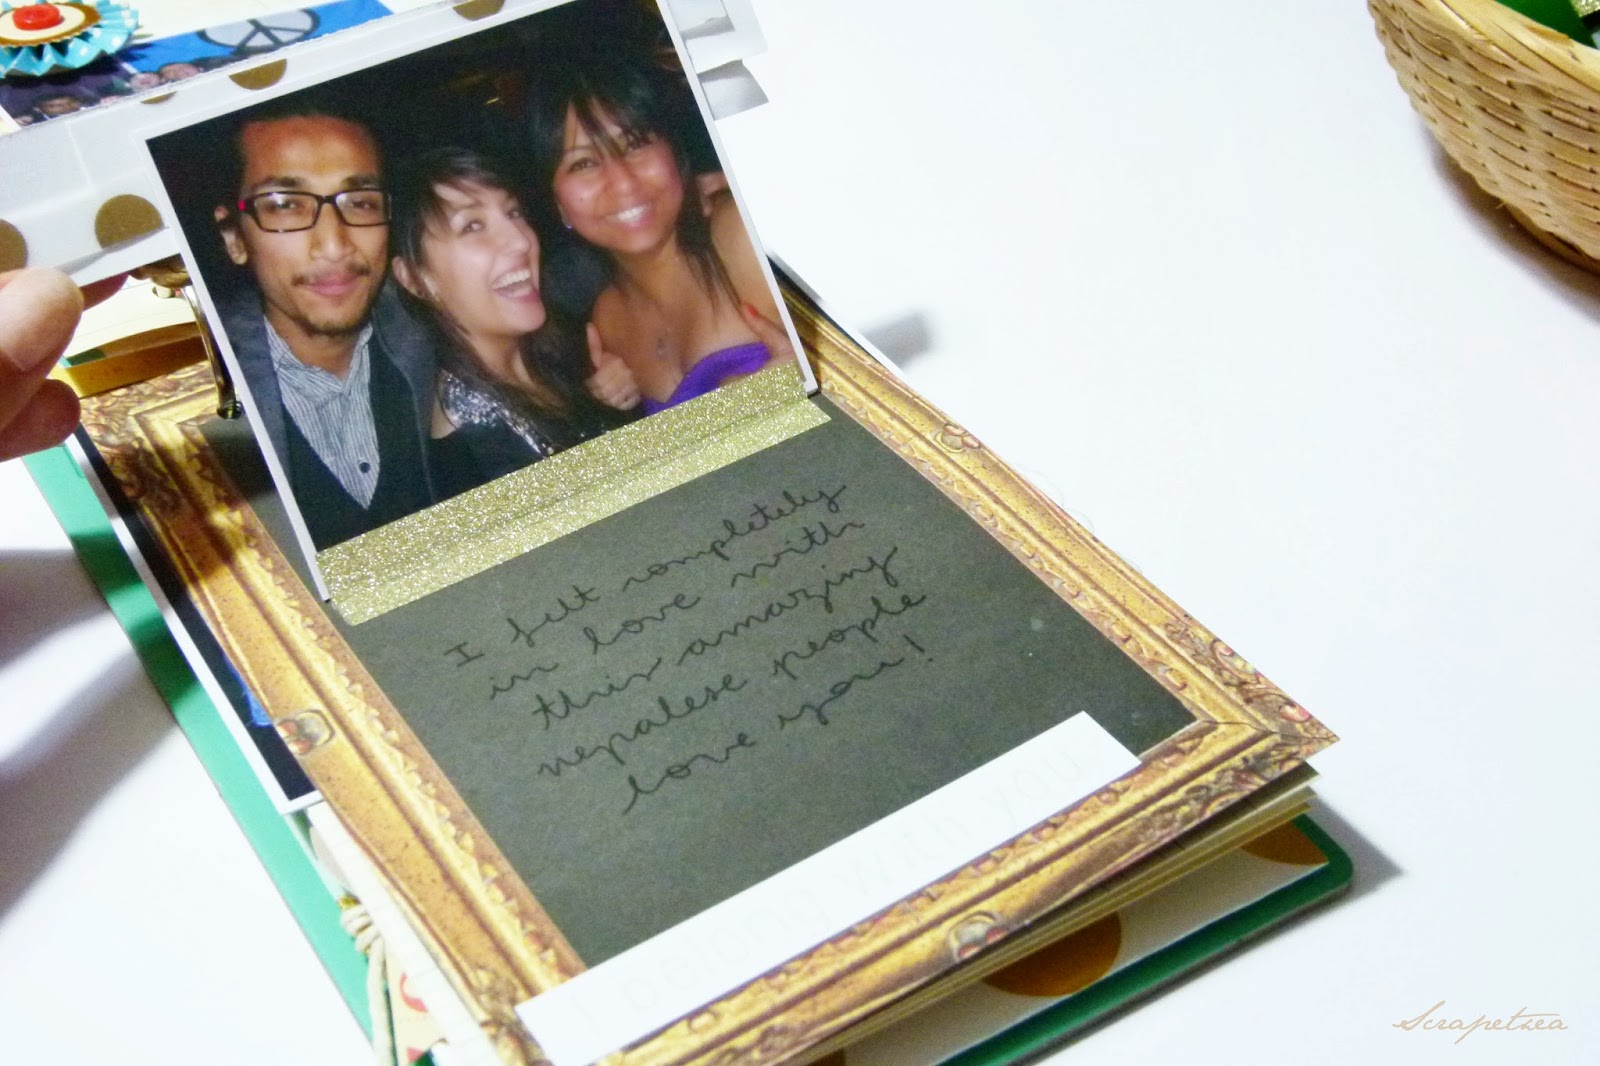 I felt completely
in love with
this amazing
nepalese people
love you!
I belong with you
Scrapetxea